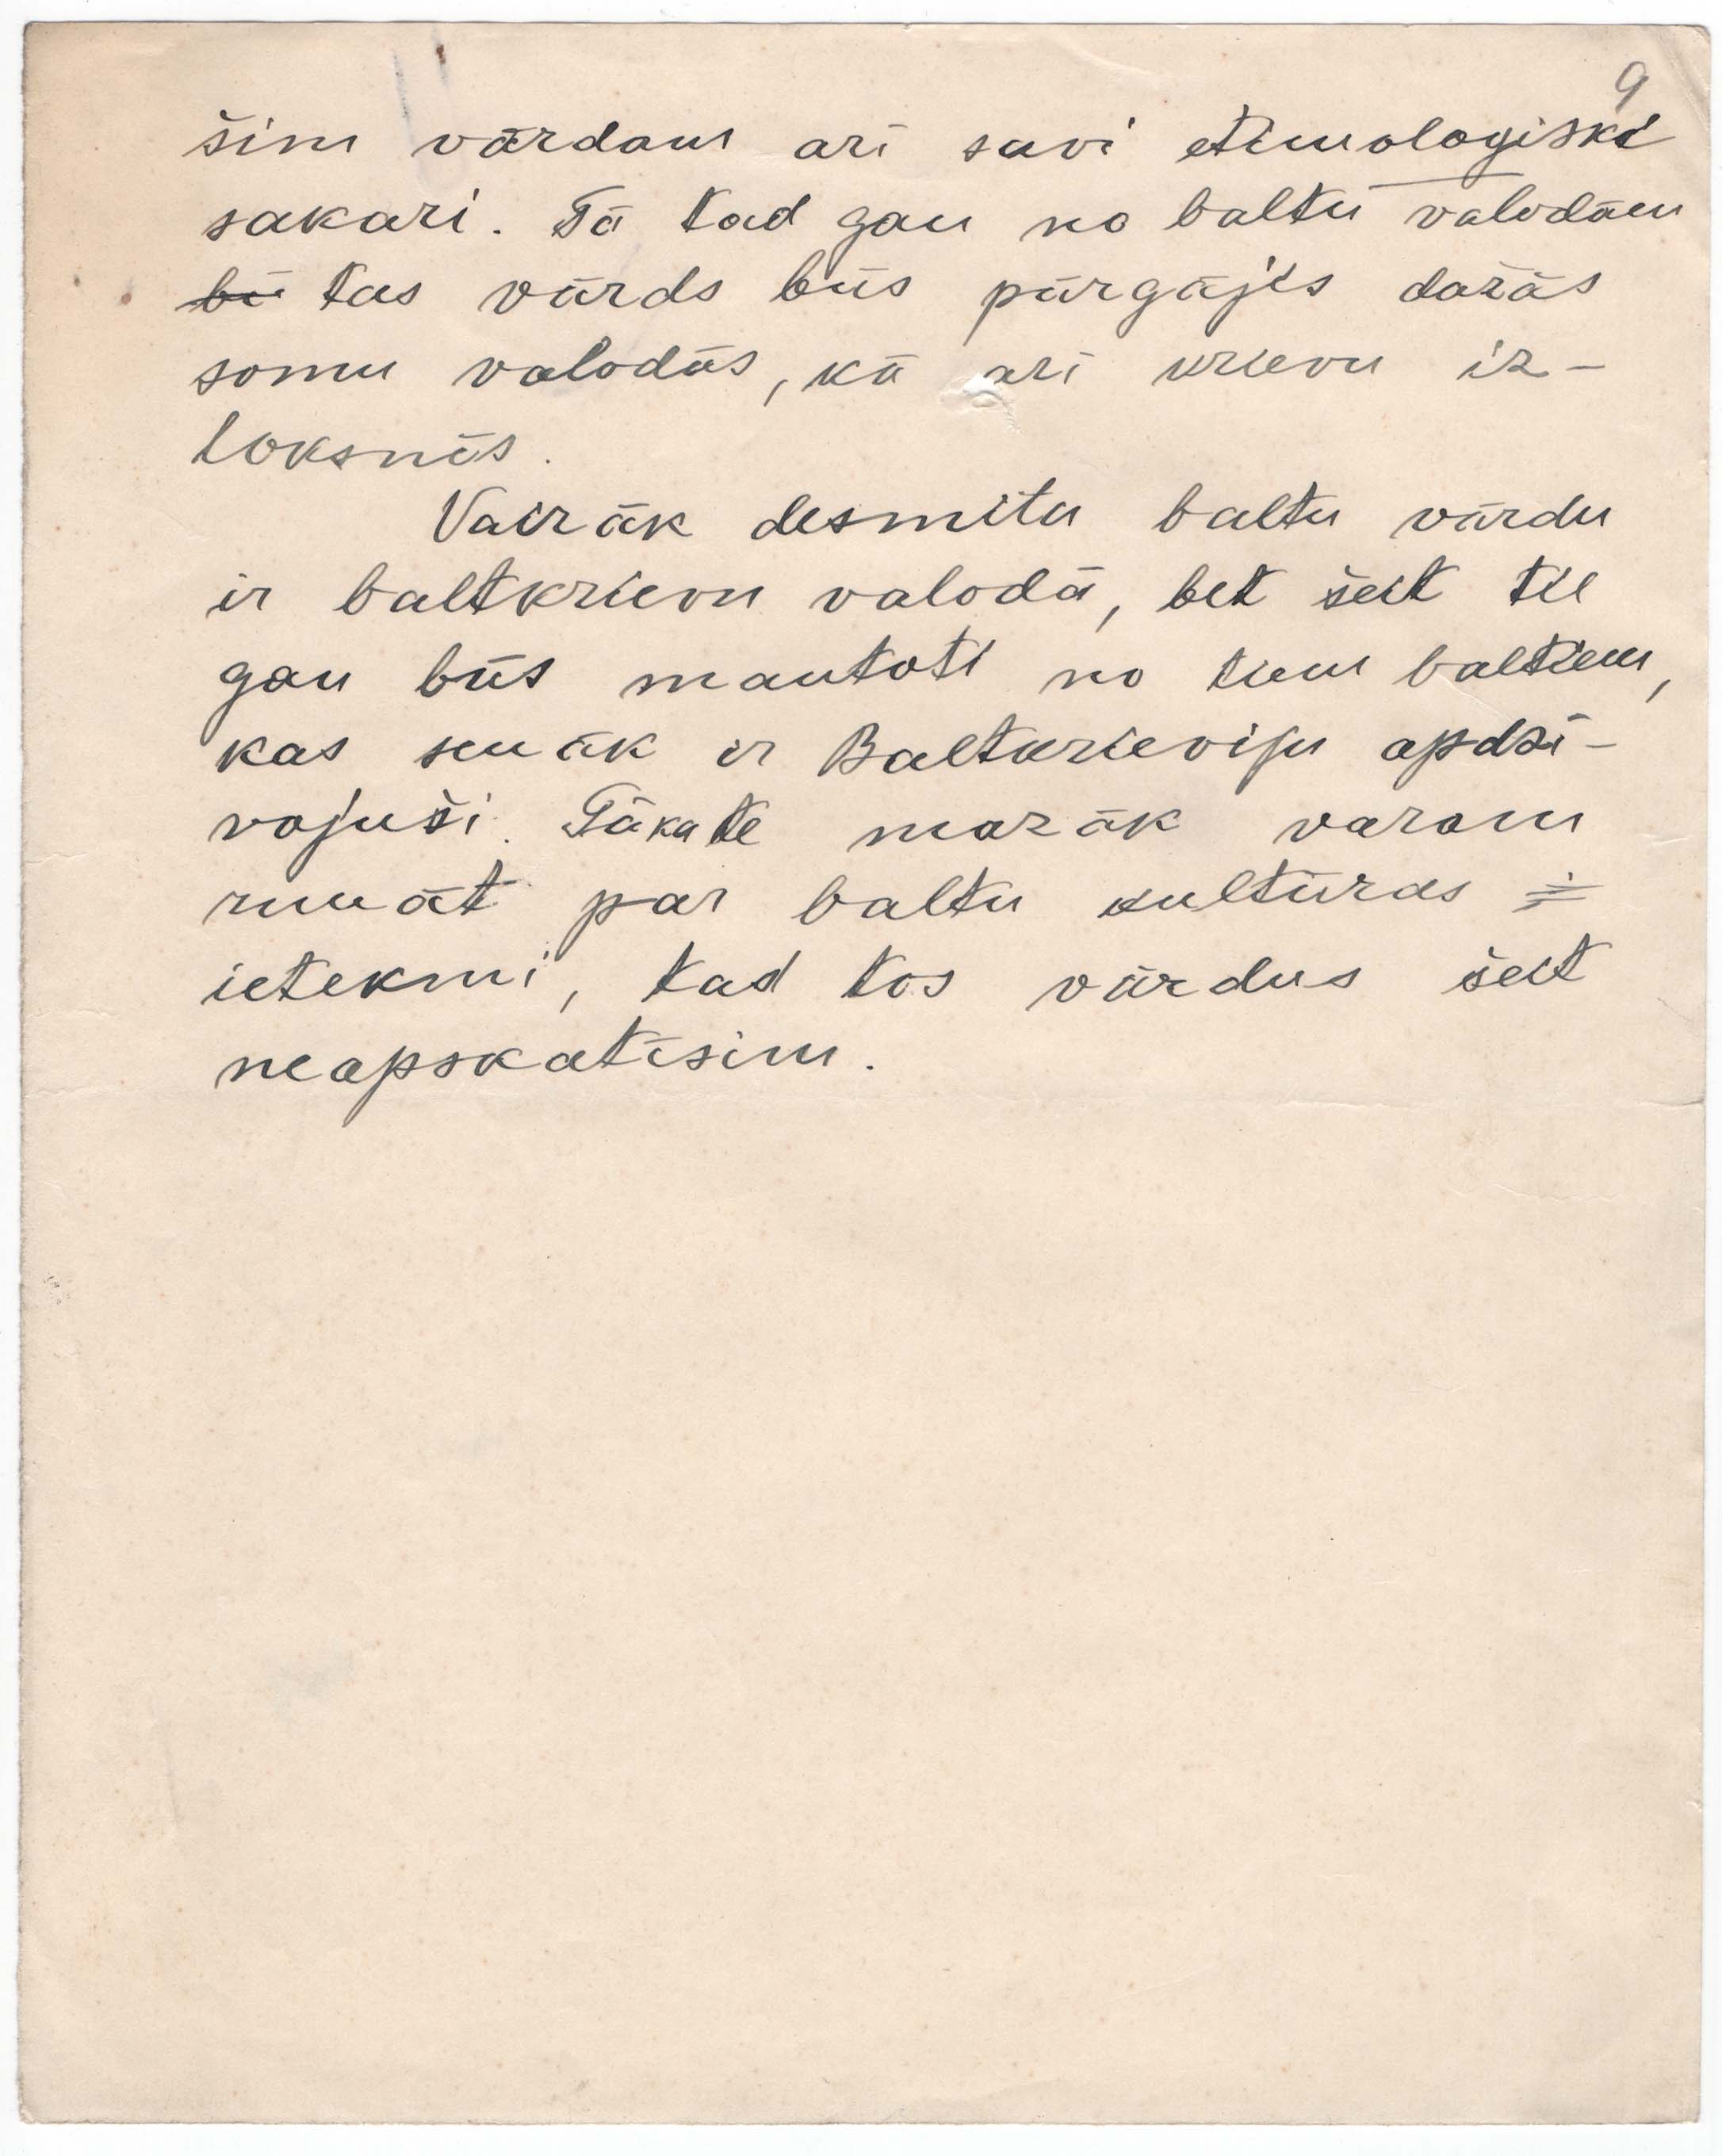 9
šim vārdam arī savi etimoloģiski
sakari. Tā tad gan no baltu valodām
bū tas vārds būs pārgājis dažās
somu valodās, kā arī krievu iz-
loksnēs.
Vairāk desmitu baltu vārdu
ir baltkrievu valodā, bet šeit tie
gan būs mantoti no tiem baltiem,
kas senāk ir Baltkrieviju apdzī-
vojuši. Tākā te mazāk varam
runāt par baltu kultūras
ietekmi, tad tos vārdus šeit
neapskatīsim.